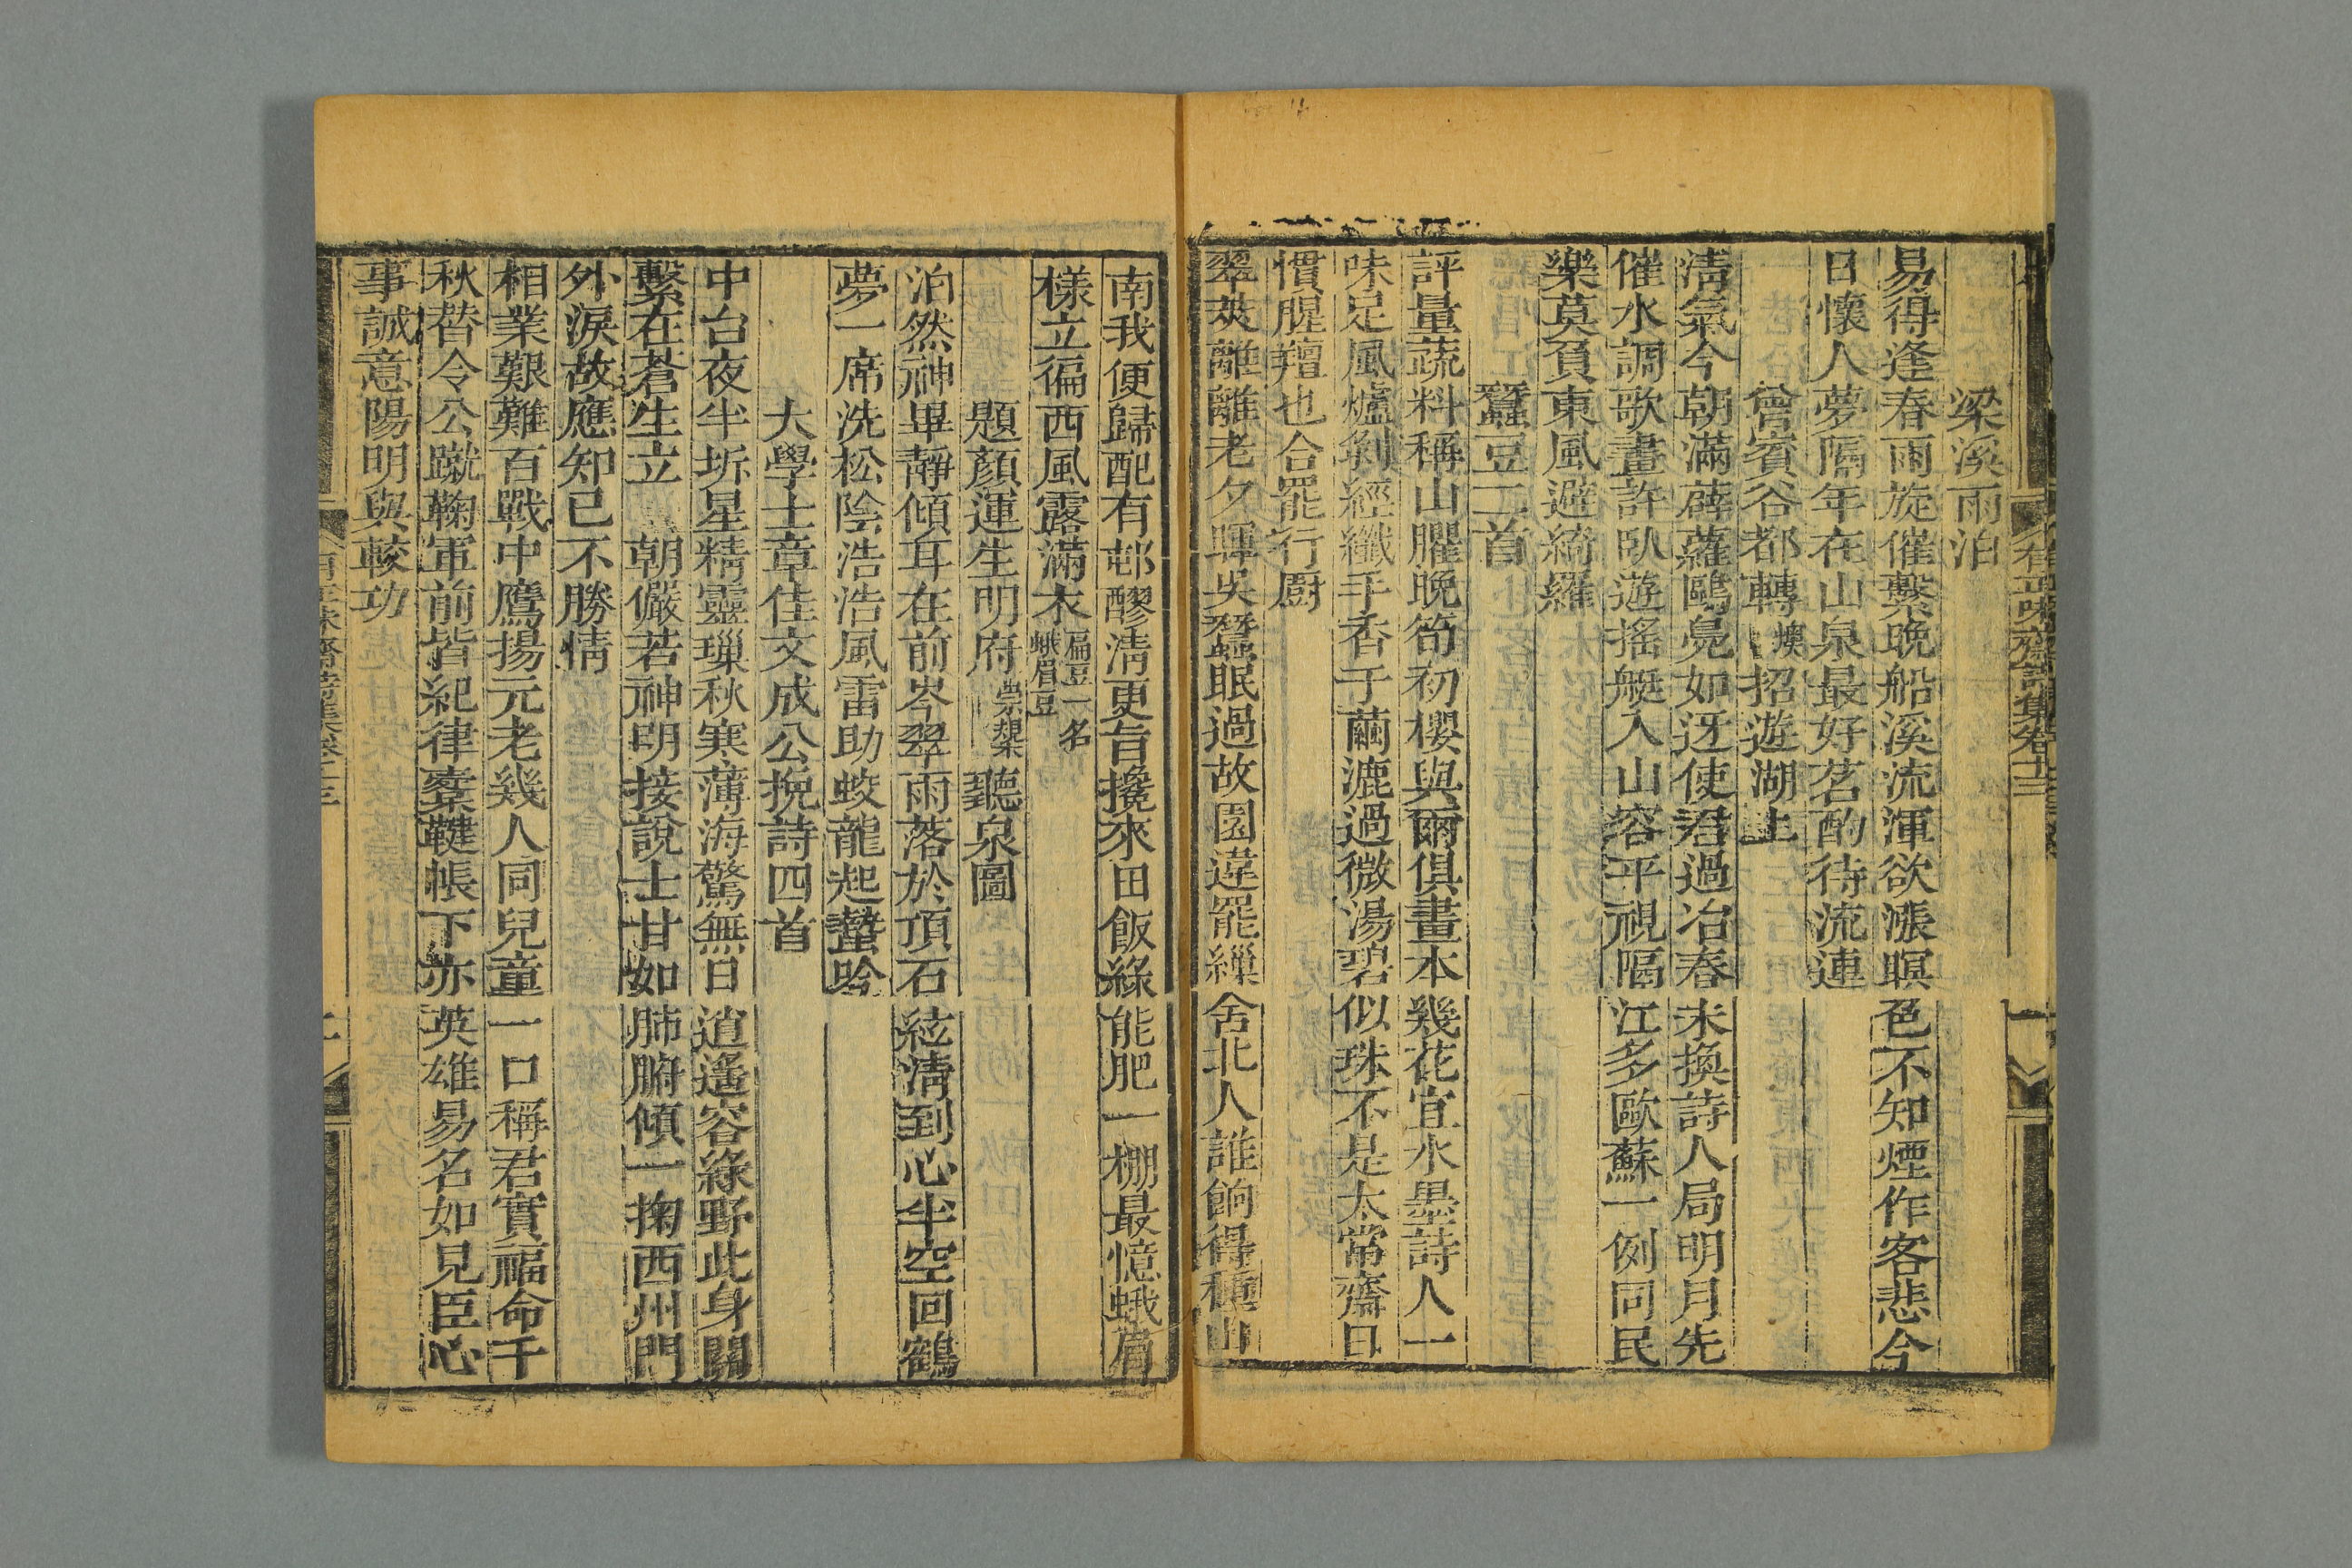 梁溪雨泊
易得逢春雨旋催繫晚船溪流渾欲漲暝色不知煙作客悲今
日懷人夢隔年在山泉最好茗酌待流連
曾賓谷都轉燠招遊湖上
淸氣今朝滿薜蘿鷗鳧如迓使君過冶春未換詩人局明月先
催水調歌畫許臥遊搖艇入山容平視隔江多歐蘇一例同民
樂莫負東風避綺羅
蠶豆二首
評量蔬料稱山臞晚筍初櫻與爾俱畫本幾花宜水墨詩人一
味足風爐剝經纖手香于繭漉過微湯碧似珠不是太常齋日
慣腥羶也合罷行廚
翠莢離離老夕暉吳蠶眠過故園違罷繅舍北人誰餉得種山
南我便歸配有邨醪淸更旨攙來田飯綠能肥一棚最憶蛾眉
樣立徧西風露滿衣扁豆一名蛾眉豆
題顏運生明府崇槼聽泉圖
泊然神畢靜傾耳在前岑翠雨落於頂石絃淸到心半空回鶴
夢一席洗松陰浩浩風雷助蛟龍起蟄吟
大學士章佳文成公挽詩四首
中台夜半坼星精靈璅秋寒薄海驚無日逍遙容綠野此身關
繫在蒼生立朝儼若神明接說士甘如肺腑傾一掬西州門
外淚故應知已不勝情
相業艱難百戰中鷹揚元老幾人同兒童一口稱君實福命千
秋替令公蹴鞠軍前皆紀律櫜鞬帳下亦英雄易名如見臣心
事誠意陽明與較功
有正味齋詩集卷十三